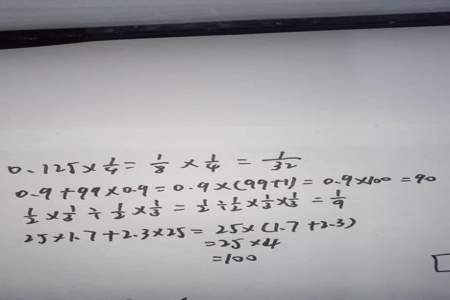 0.125×1/4=1/8×1/4=1/32
0.9+99×0.9=0.9×(99+1)=0.9×100=90
1/2×1/3÷1/2×1/3=1/2÷1/2×1/3×1/3=1/9
25×1.7+2.3×25=25×(1.7+2.3)
=25×4
=100